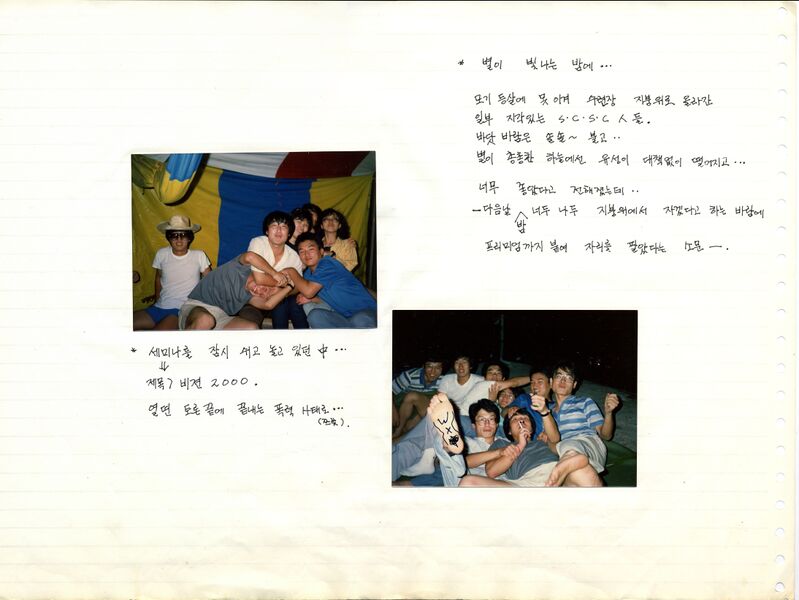 * 별이 빛나는 밤에 …
모기 등살에 못 이겨 수련장 지붕위로 올라간
일부 지각있는 S·C·S·C 人들.
바닷 바람은 솔솔~ 불고 ··
별이 총총한 하늘에선 유성이 대책없이 떨어지고 …
너무 좋았다고 전해졌는데 ··
— 다음날 밤 너두 나두 지붕위에서 자겠다고 하는 바람에
프리미엄까지 붙여 자리를 팔았다는 소문 —.
* 세미나를 잠시 쉬고 놀고 있던 中 …
⇓
제목? 비젼 2000.
열띤 토론 끝에 끝내는 폭력 사태로 …